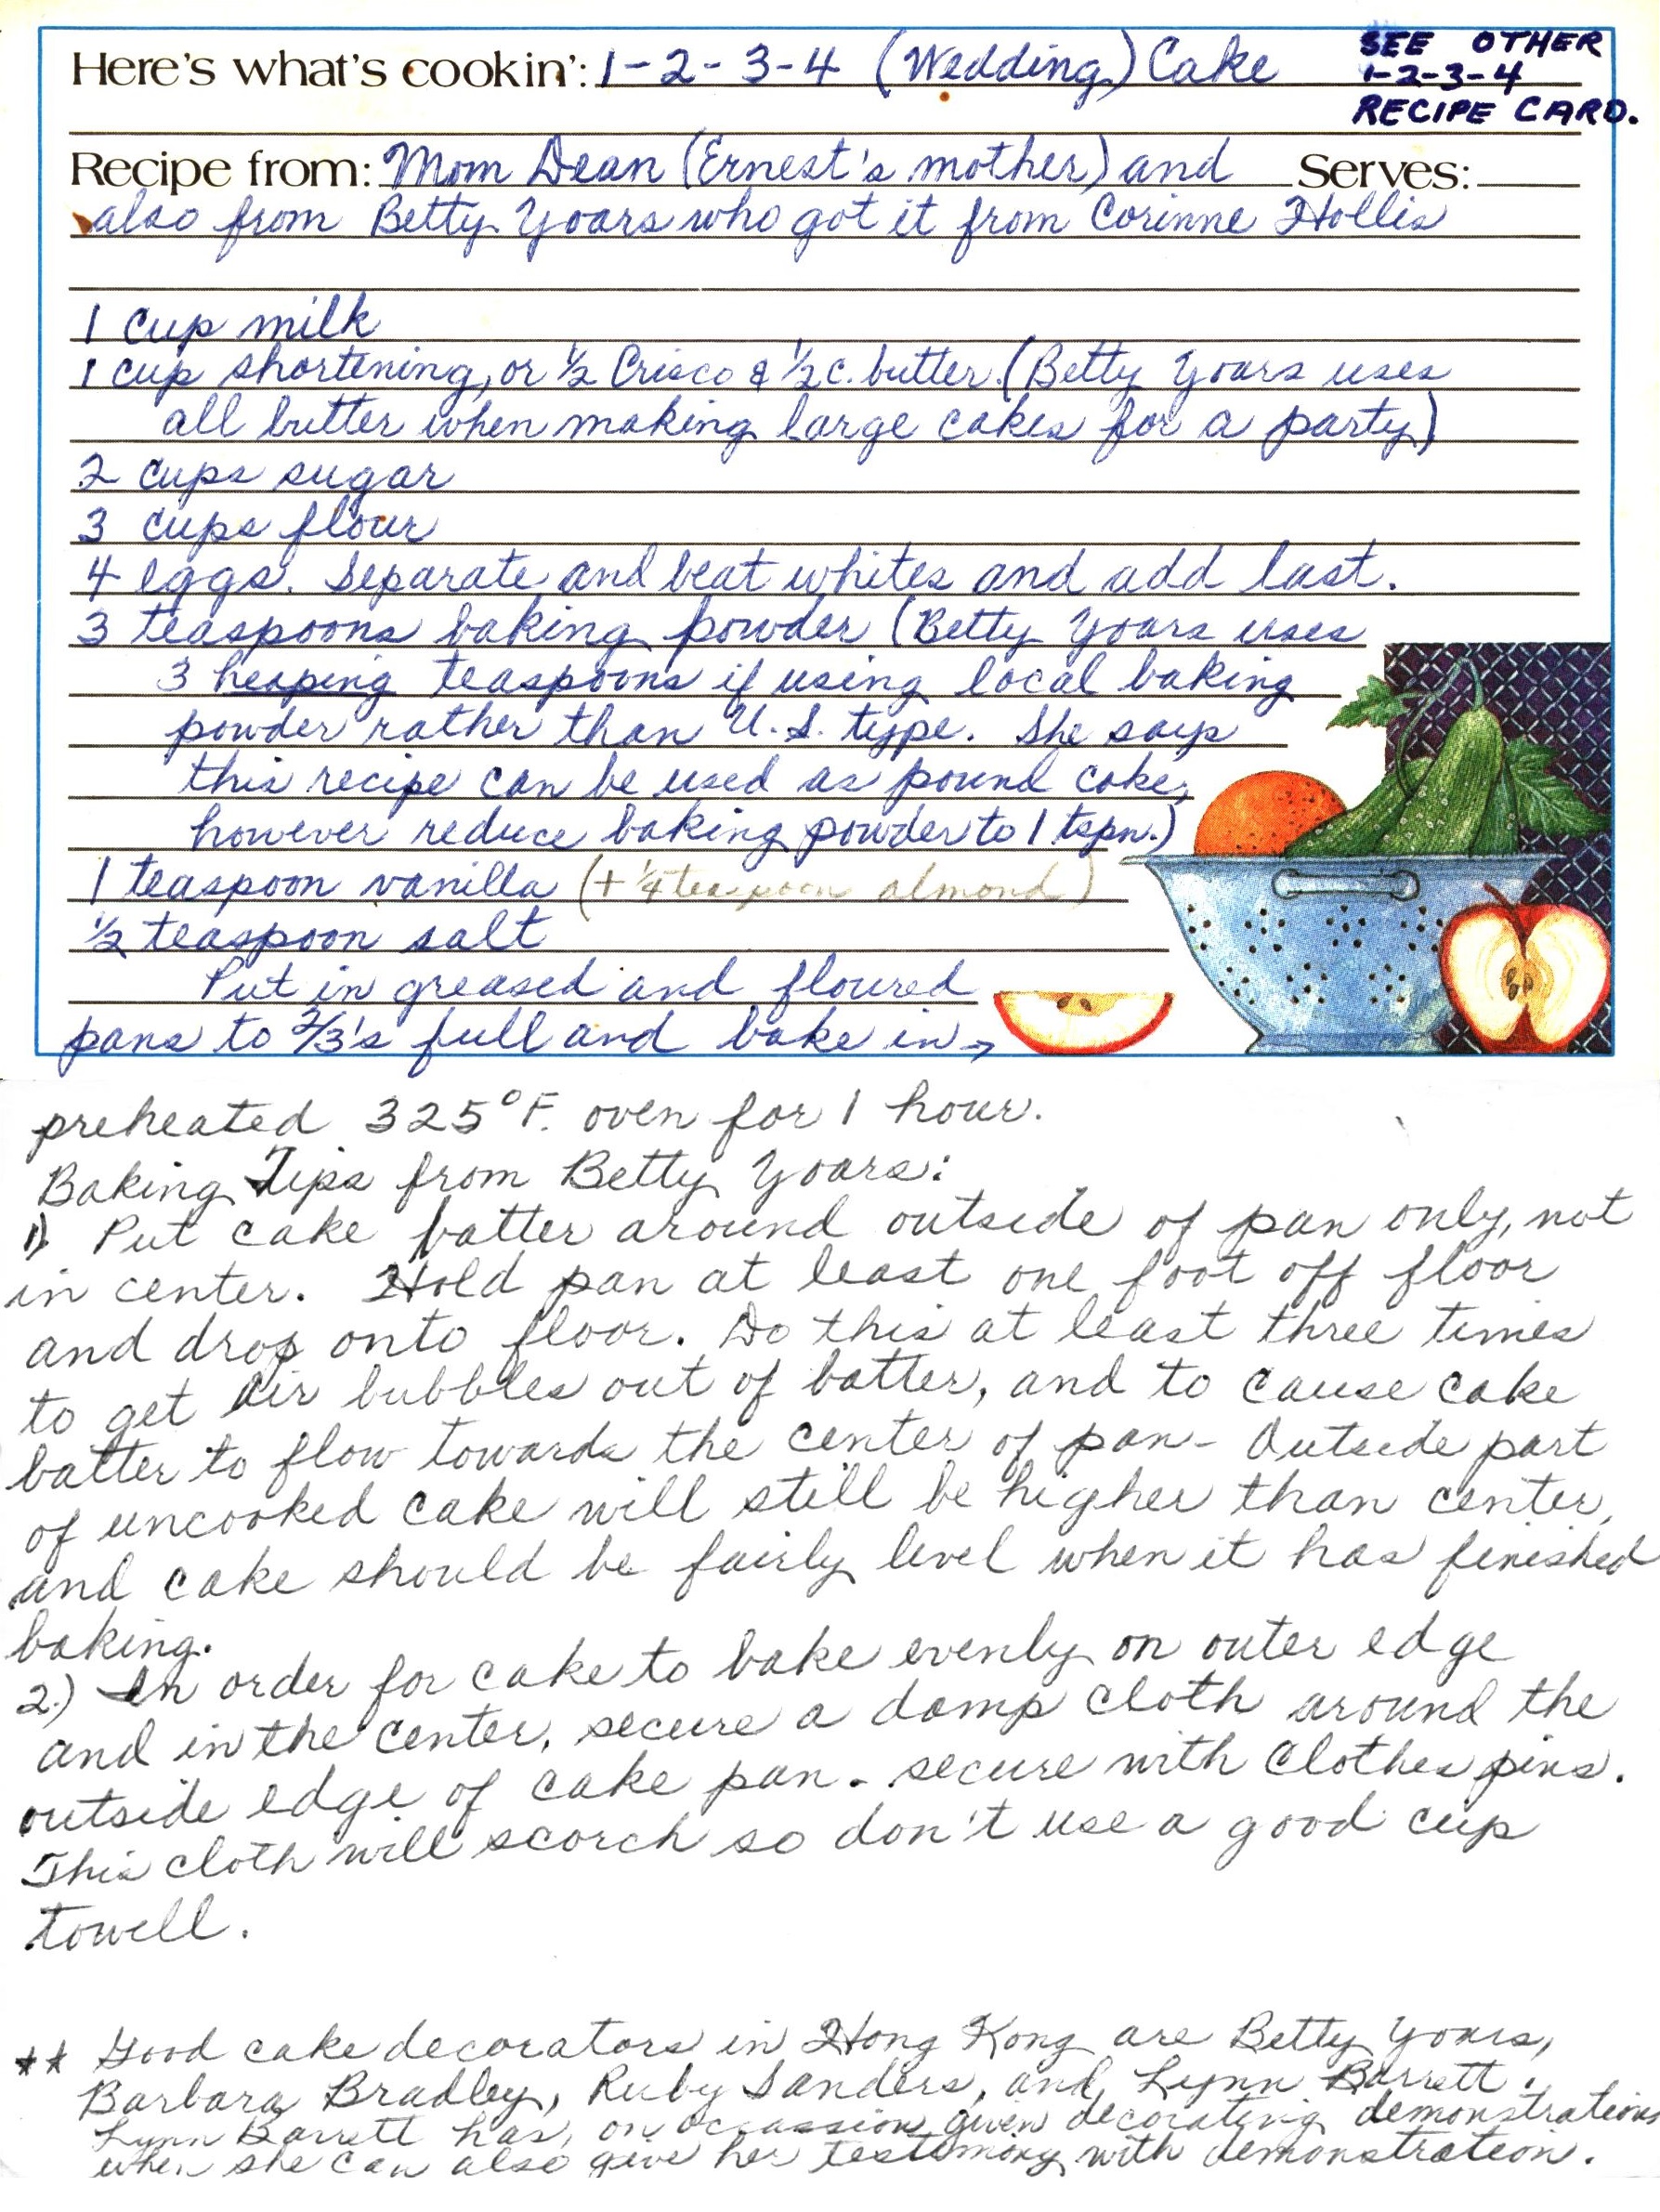 Here's what's cookin': 1-2-3-4 (Wedding) Cake
SEE OTHER
1-2-3-4
RECIPE CARD.
Recipe from: Mom Dean (Ernest's mother) and Serves:
also from Betty Yoars who got it from Corinne Hollis
1 cup milk
1 cup shortening, or ½ Crisco & ½ c. butter. (Betty Yoars uses
all butter when making large cakes for a party)
2 cups sugar
3 cups flour
4 eggs. Separate and beat whites and add last.
3 teaspoons baking powder (Betty Yoars uses
3 heaping teaspoons if using local baking
powder rather than U.S. type. She says
this recipe can be used as pound cake,
however reduce baking powder to 1 tspn.)
1 teaspoon vanilla (+ ¼ teaspoon almond)
½ teaspoon salt
Put in greased and floured
pans to 2/3's full and bake in →
preheated 325°F. oven for 1 hour.
Baking Tips from Betty Yoars:
1). Put cake batter around outside of pan only, not
in center. Hold pan at least one foot off floor
and drop onto floor. Do this at least three times
to get air bubbles out of batter, and to cause cake
batter to flow towards the center of pan - Outside part
of uncooked cake will still be higher than center,
and cake should be fairly level when it has finished
baking.
2.) In order for cake to bake evenly on outer edge
and in the center, secure a damp cloth around the
outside edge of cake pan - secure with clothes pins.
This cloth will scorch so don't use a good cup
towell.
** Good cake decorators in Hong Kong are Betty Yoars,
Barbara Bradley, Ruby Sanders, and Lynn Barrett.
Lynn Barrett has, on occassion, given decorating demonstrations
when she can also give her testimony with demonstration.